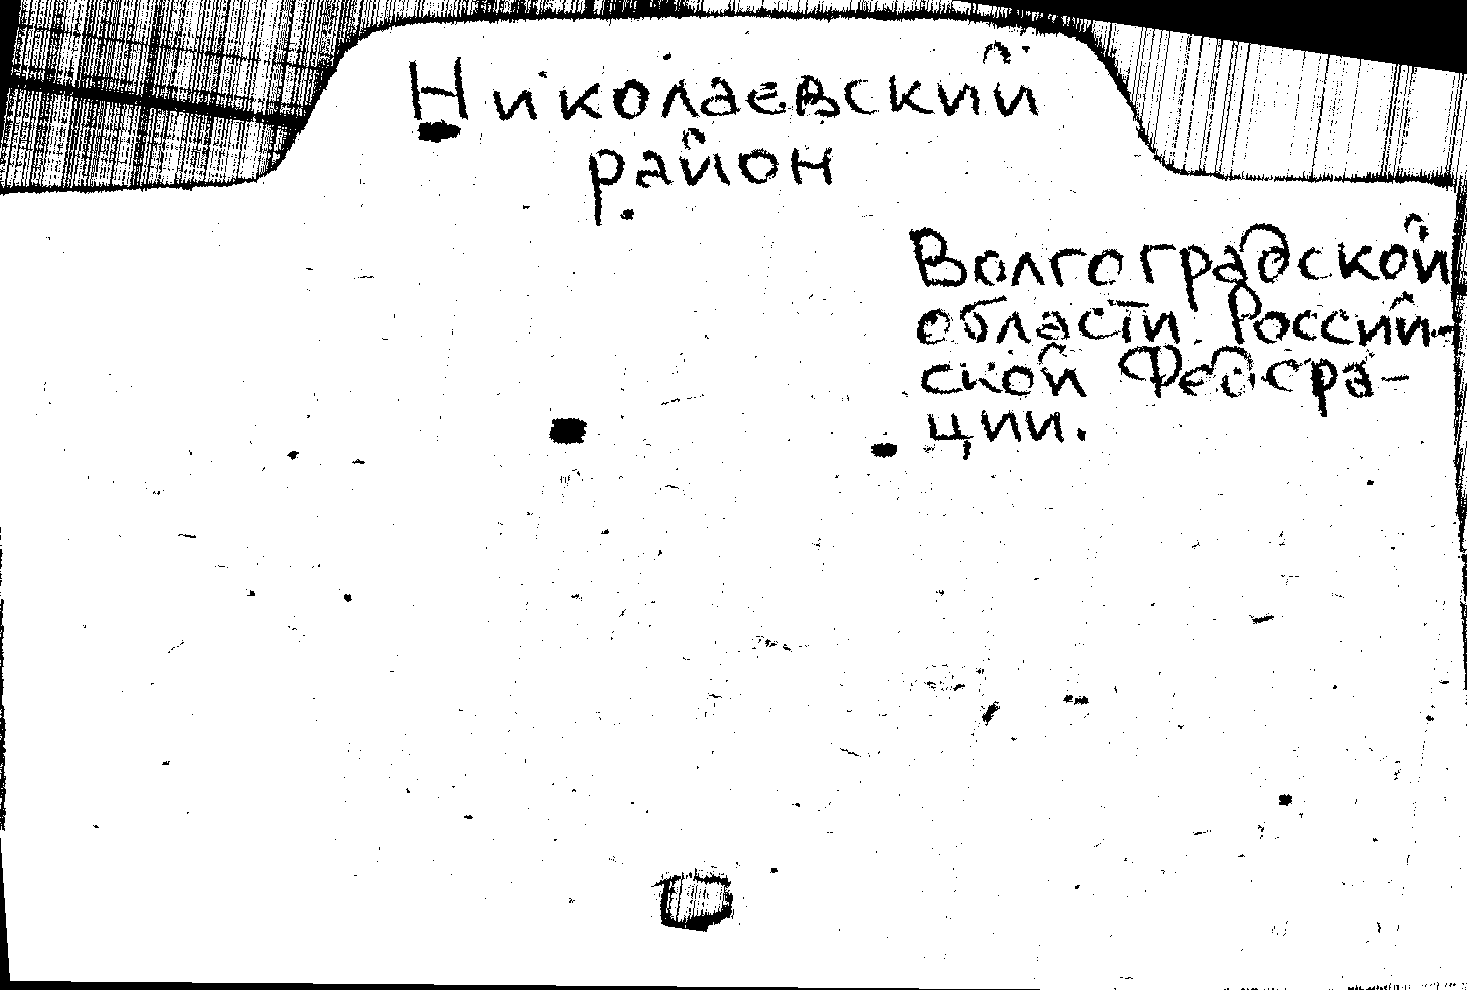 Николаевский
район
Волгоградской
области Россий-
ской Федера-
ции.